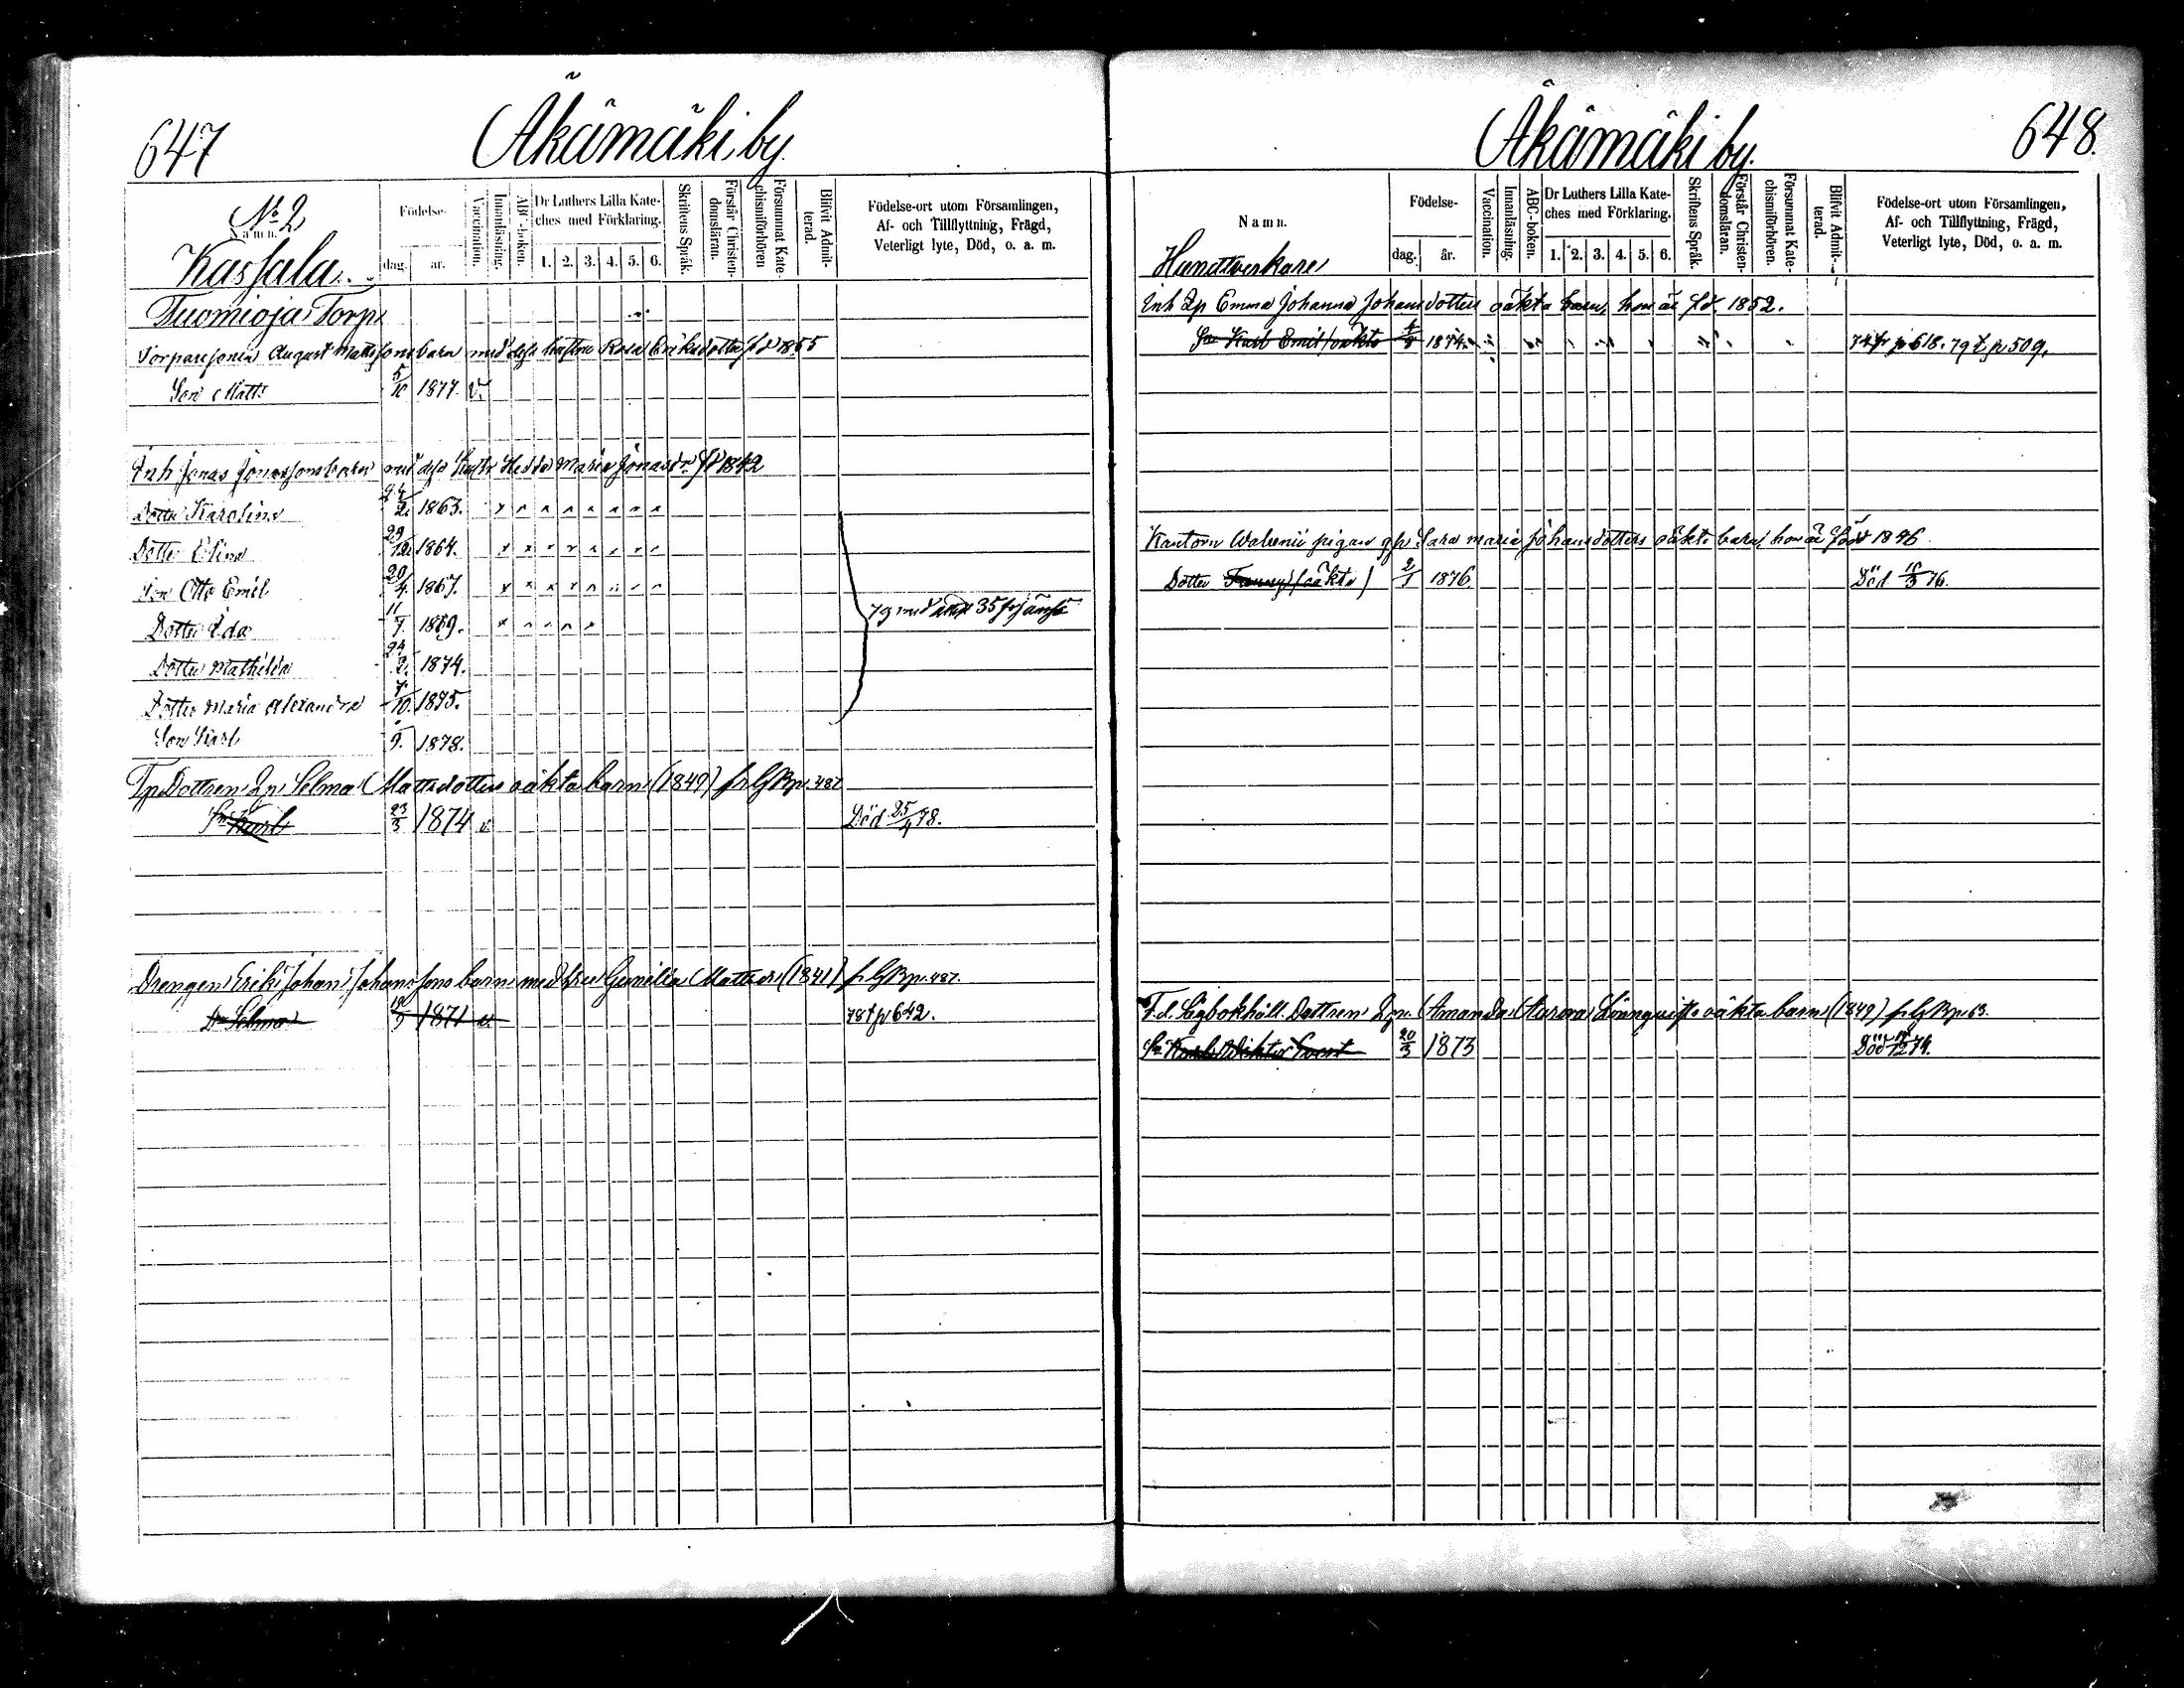 647
Äkämäki by.
No 2
Namn.
Kassala.
Födelse-
dag.
år.
Vaccination.
Innanläsning.
ABC-boken.
Dr Luthers Lilla Kate-
ches med Förklaring.
1. 2. 3. 4. 5. 6.
Skriftens Språk.
Förstår Christen-
domsläran.
Försummat Kate-
chismiförhören
Blifvit Admit-
terad.
Födelse-ort utom Församlingen,
Af- och Tillflyttning, Frägd,
Veterligt lyte, Död, o. a. m.
Tuomioja Torp
Torparesonen August Mattssons barn med dess hustru Rosa Eriksdotter fd 1855
Son Matts 5/10 1877. v.
Inh Jonas Jonassons barn med dess hustr Hedda Maria Jonasdr. fd 1842
Dotter Karolina 24/2 1863.
Dotter Elina 29/12 1864.
Son Otto Emil 20/4 1867.
Dotter Ida 11/7 1869.
79 med 35 fr
Dotter Mathilda 24/3 1874.
Dotter Maria Alexandra 7/10 1875.
Son Karl 9. 1878.
Tp Dottren Qp Selma Mattsdotters oäkta barn (1849) fr G Bp. 487
Sn Karl 23/3 1874 v. Död 25/4 78.
Drengen Erik Johan Johanssons barn med hu Gunilla Mattsdr (1841) fr G Bp. 487.
Dr Selma 1871 v. 78 t p 642.
Äkämäki by.
648.
Namn.
Handtverkare
Födelse-
dag.
år.
Vaccination.
Innanläsning.
ABC-boken.
Dr Luthers Lilla Kate-
ches med Förklaring.
1. 2. 3. 4. 5. 6.
Skriftens Språk.
Förstår Christen-
domsläran.
Försummat Kate-
chismiförhören.
Blifvit Admit-
terad.
Födelse-ort utom Församlingen,
Af- och Tillflyttning, Frägd,
Veterligt lyte, Död, o. a. m.
Inh Qp Emma Johanna Johansdotters oäkta barn, hon är fd. 1852.
Son Karl Emil (oäkta 1874. 74 fr p 618. 79 t p 509.
Kantorn pigan qp Sara Maria Johansdotters oäkta barn, hon är född 1846
Dotter Fanny (oäkta) 2/1 1876. Död 10/3 76.
F. d. Sågbokhåll. Dottren Qp. Amanda Aurora Lönnqvists oäkta barn (1849) fr G Bp 63.
Sn Karl Wiktor 20/3 1873 Död 74.